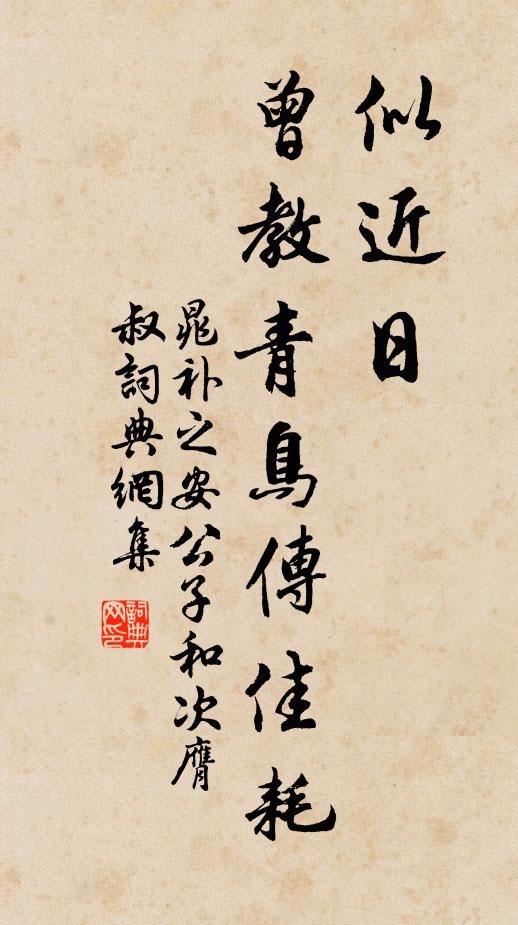 似近日
曾教青鳥傳佳耗
晁補之安公子和次膺
叔詞典網集
詞典
网印